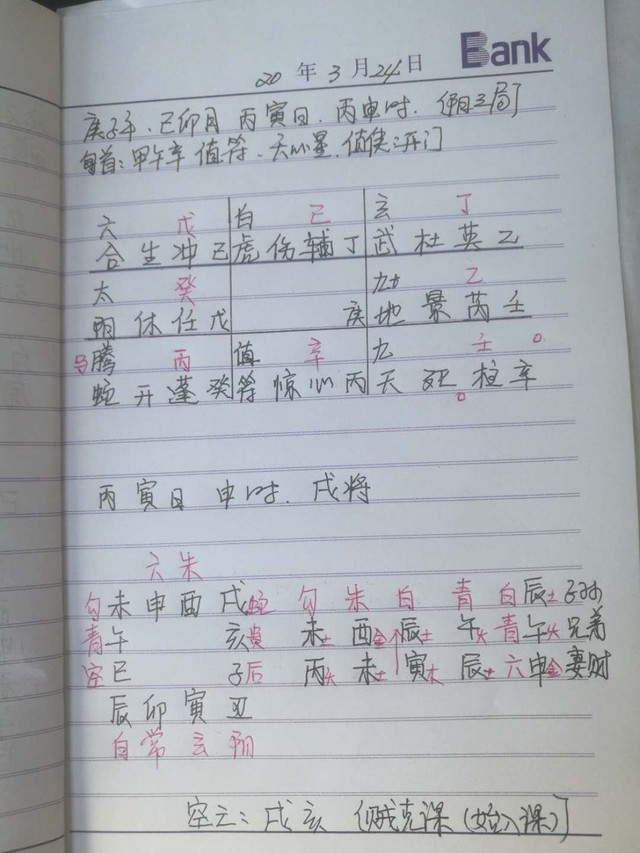 Bank
20 年 3 月 24 日
庚子年、己卯月 丙寅日、丙申时、(阳三局)
旬首:甲午辛 值符、天心星、值使:开门
六 戊 白 己 玄 丁
合生冲己 虎伤辅丁 武杜英乙
太 癸 九 乙
阴休任戊 庚 地景芮壬
马 腾 丙 值 辛 九 壬 o
蛇开蓬癸 符惊心丙 天死柱辛
o
丙寅日 申时、戌将
六朱
勾未申酉戌蛇 勾 朱 白 青 白辰土子孙
青午 亥贵 未土 酉金 辰土 午火 青午火兄弟
空巳 子后 丙火 未土 寅木 辰土 六申金妻财
辰卯寅丑
白常玄阴
空亡:戌亥 (贼克课(始入课))